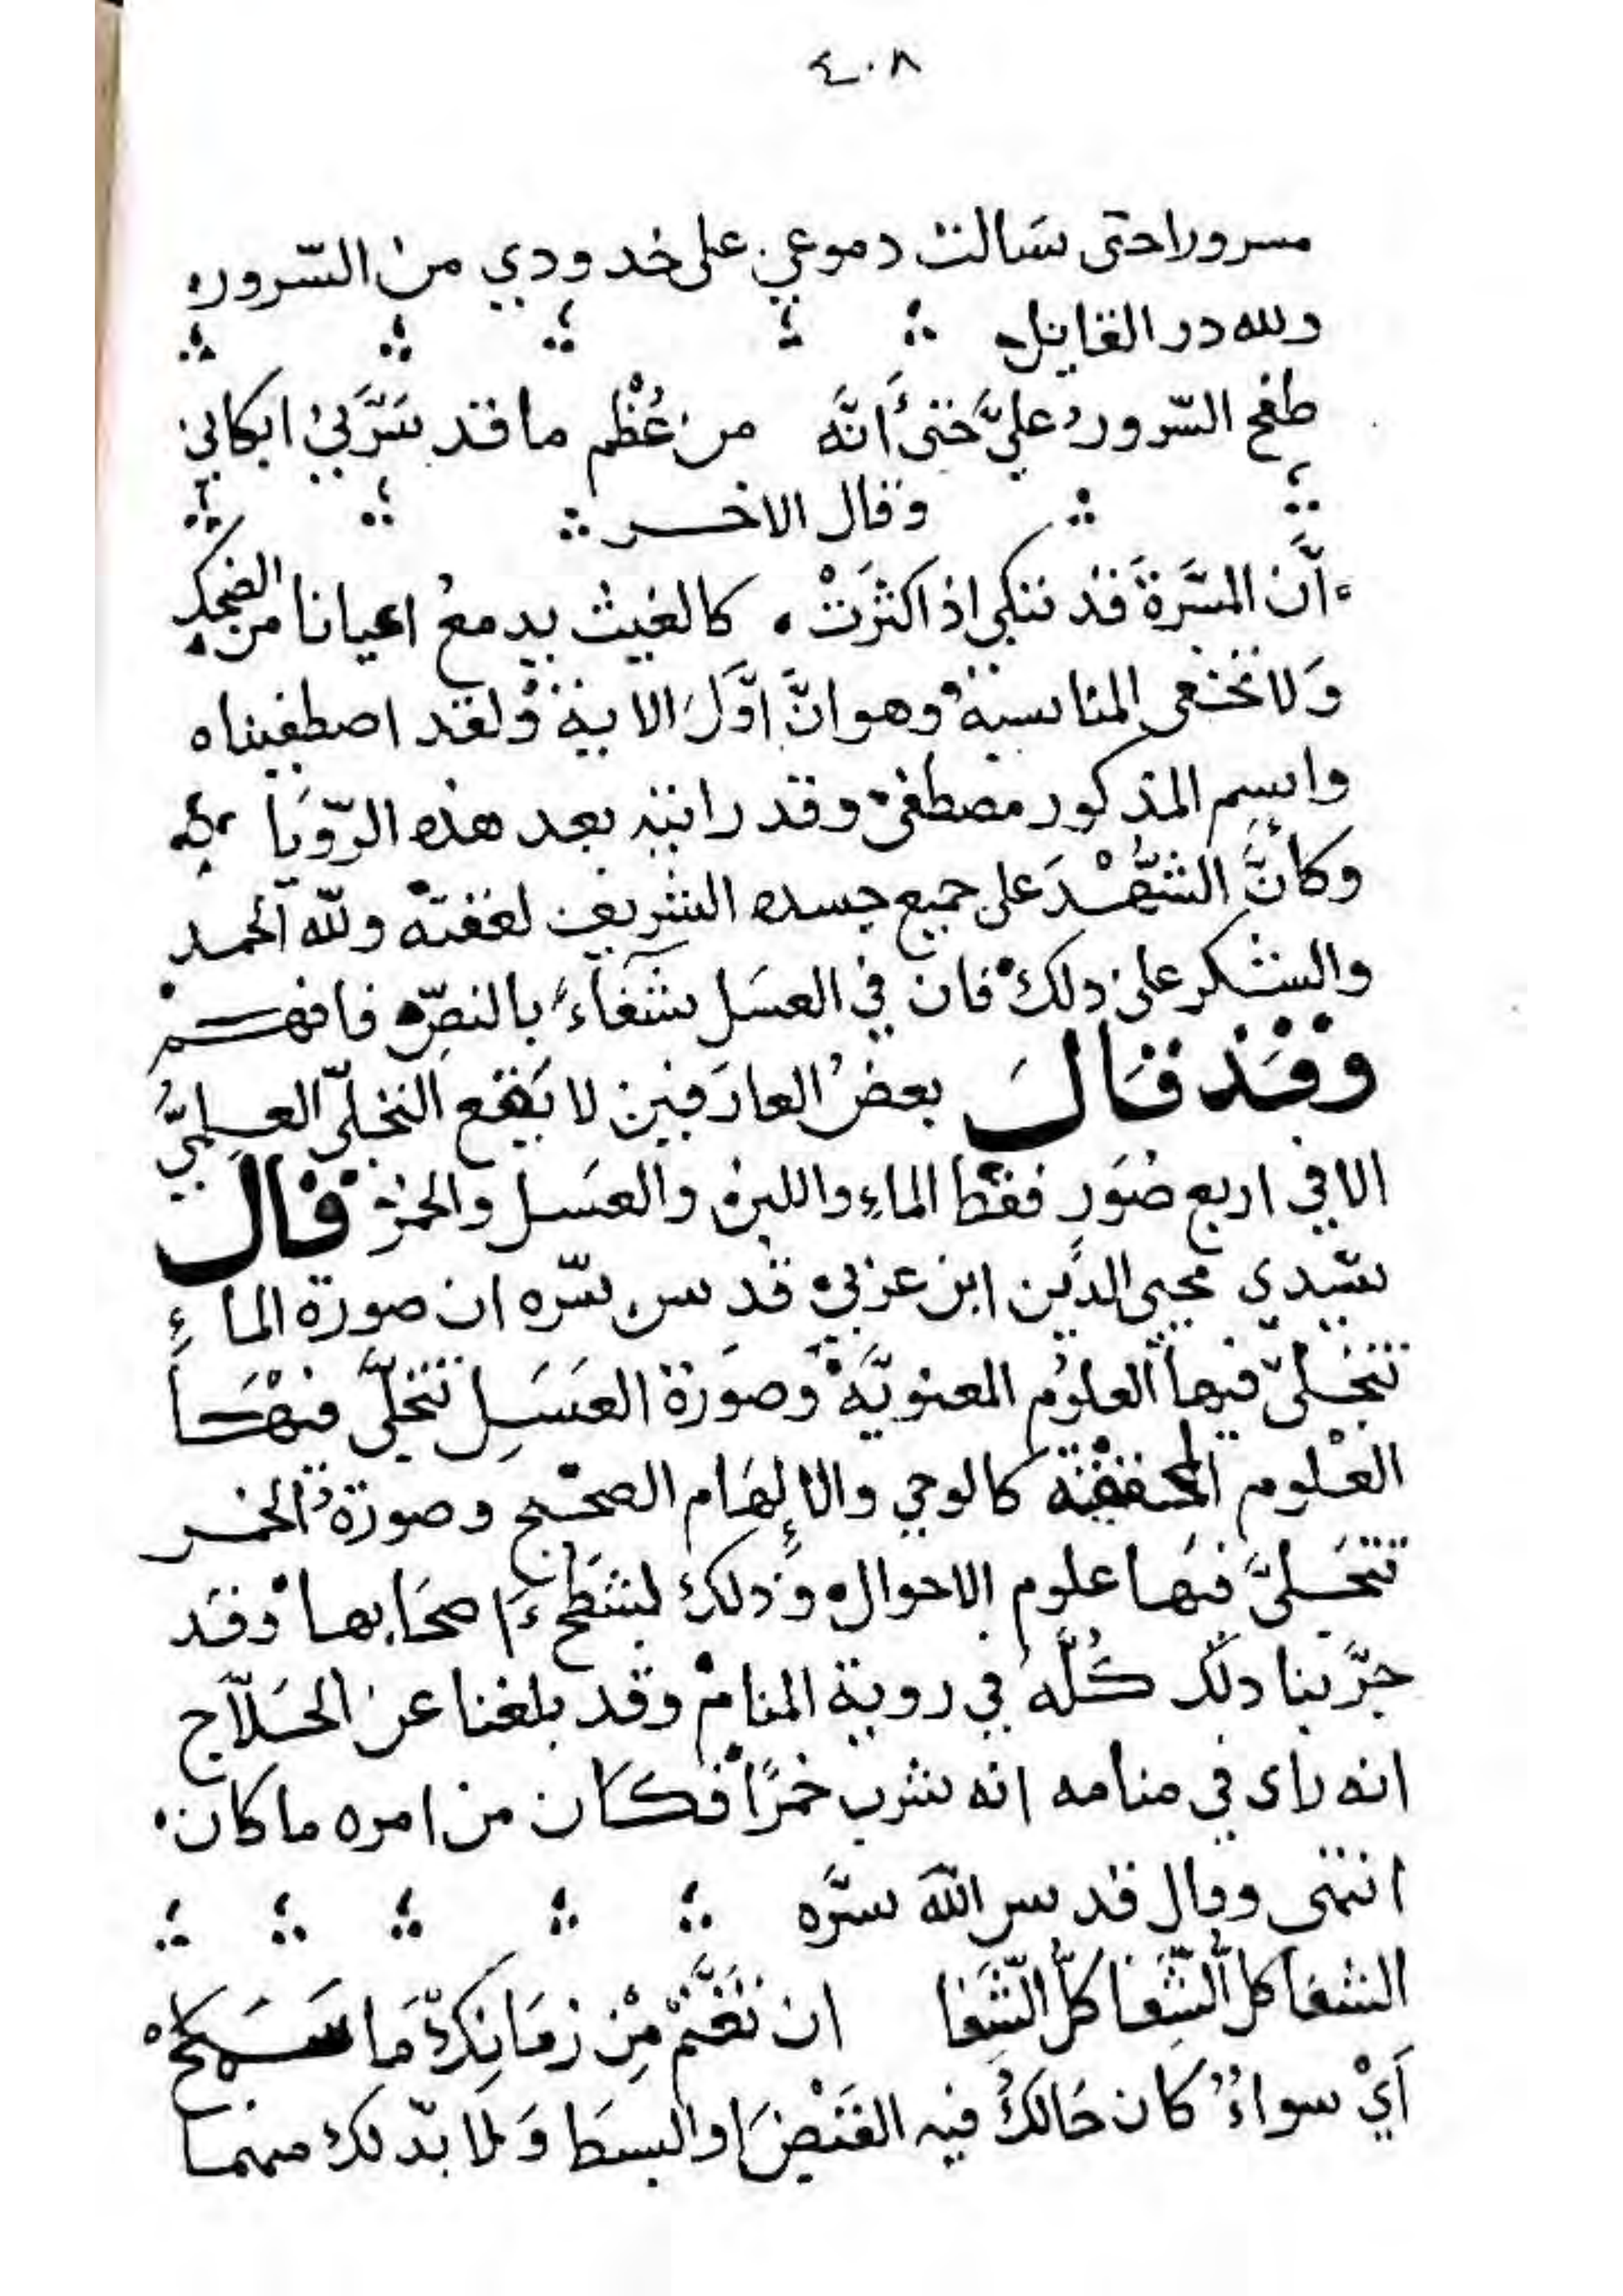 ٤٠٨
مسرورا حتى سَالت دموعي على خدودي من السّرور
ولله در القايل
طفح السّرورُ عليَّ حتى أنَّه من عُظْمِ ما قد سَرَّني ابكاني
وقال الاخر
أنَّ المسَّرةَ قد تبكي اذا كثَرَتْ كالغيث يدمعُ احيانا من الضحك
وَلا تخفى المناسبة وهو انَّ اوَّلَ الاية ولقد اصطفيناه
واسم المذكور مصطفى وقد رايته بعد هذه الرّويَا
وكأنَّ الشَّهْدَ على جميع جسده الشريف لعقته ولله الحمد
والشكر على ذلك فان في العسَل شفَاءً بالنصِّ فافهم
وقَد قَالَ بعضُ العارفين لا يقَع التجلّي العلميُّ
الا في اربع صُوَرٍ فقط الماءِ واللبن والعسَل والخمر قال
سيّدي محيي الدّين ابن عربي قدس سرّه ان صورة الماءِ
تتجلّى فيها العلوُم المعنويَّة وصوَرة العَسَلِ تتجلّى فيهَا
العْلوم المحققة كالوحي والإلهَام الصحيح وصورةُ الخمر
تتجَلَّى فيهَا علوم الاحوال وذلك لشطح أصحَابها وقد
جرَّبنا ذلك كُلّه في روية المنام وقد بلغنا عن الحَلاّج
انه راى في منامه انه شرب خمرًا فكان من امره ما كان
انتهى وقال قدس اللّه سرَّه
الشفا كلّ الشِّفا كلّ الشِّفا ان تَغْتَنمْ مِنْ زمَانِكَ مَا سَمَحْ
أيْ سواءٌ كان حَالكُ فيه القَبْضَ او البسطَ وَلا بدّ لك منهما